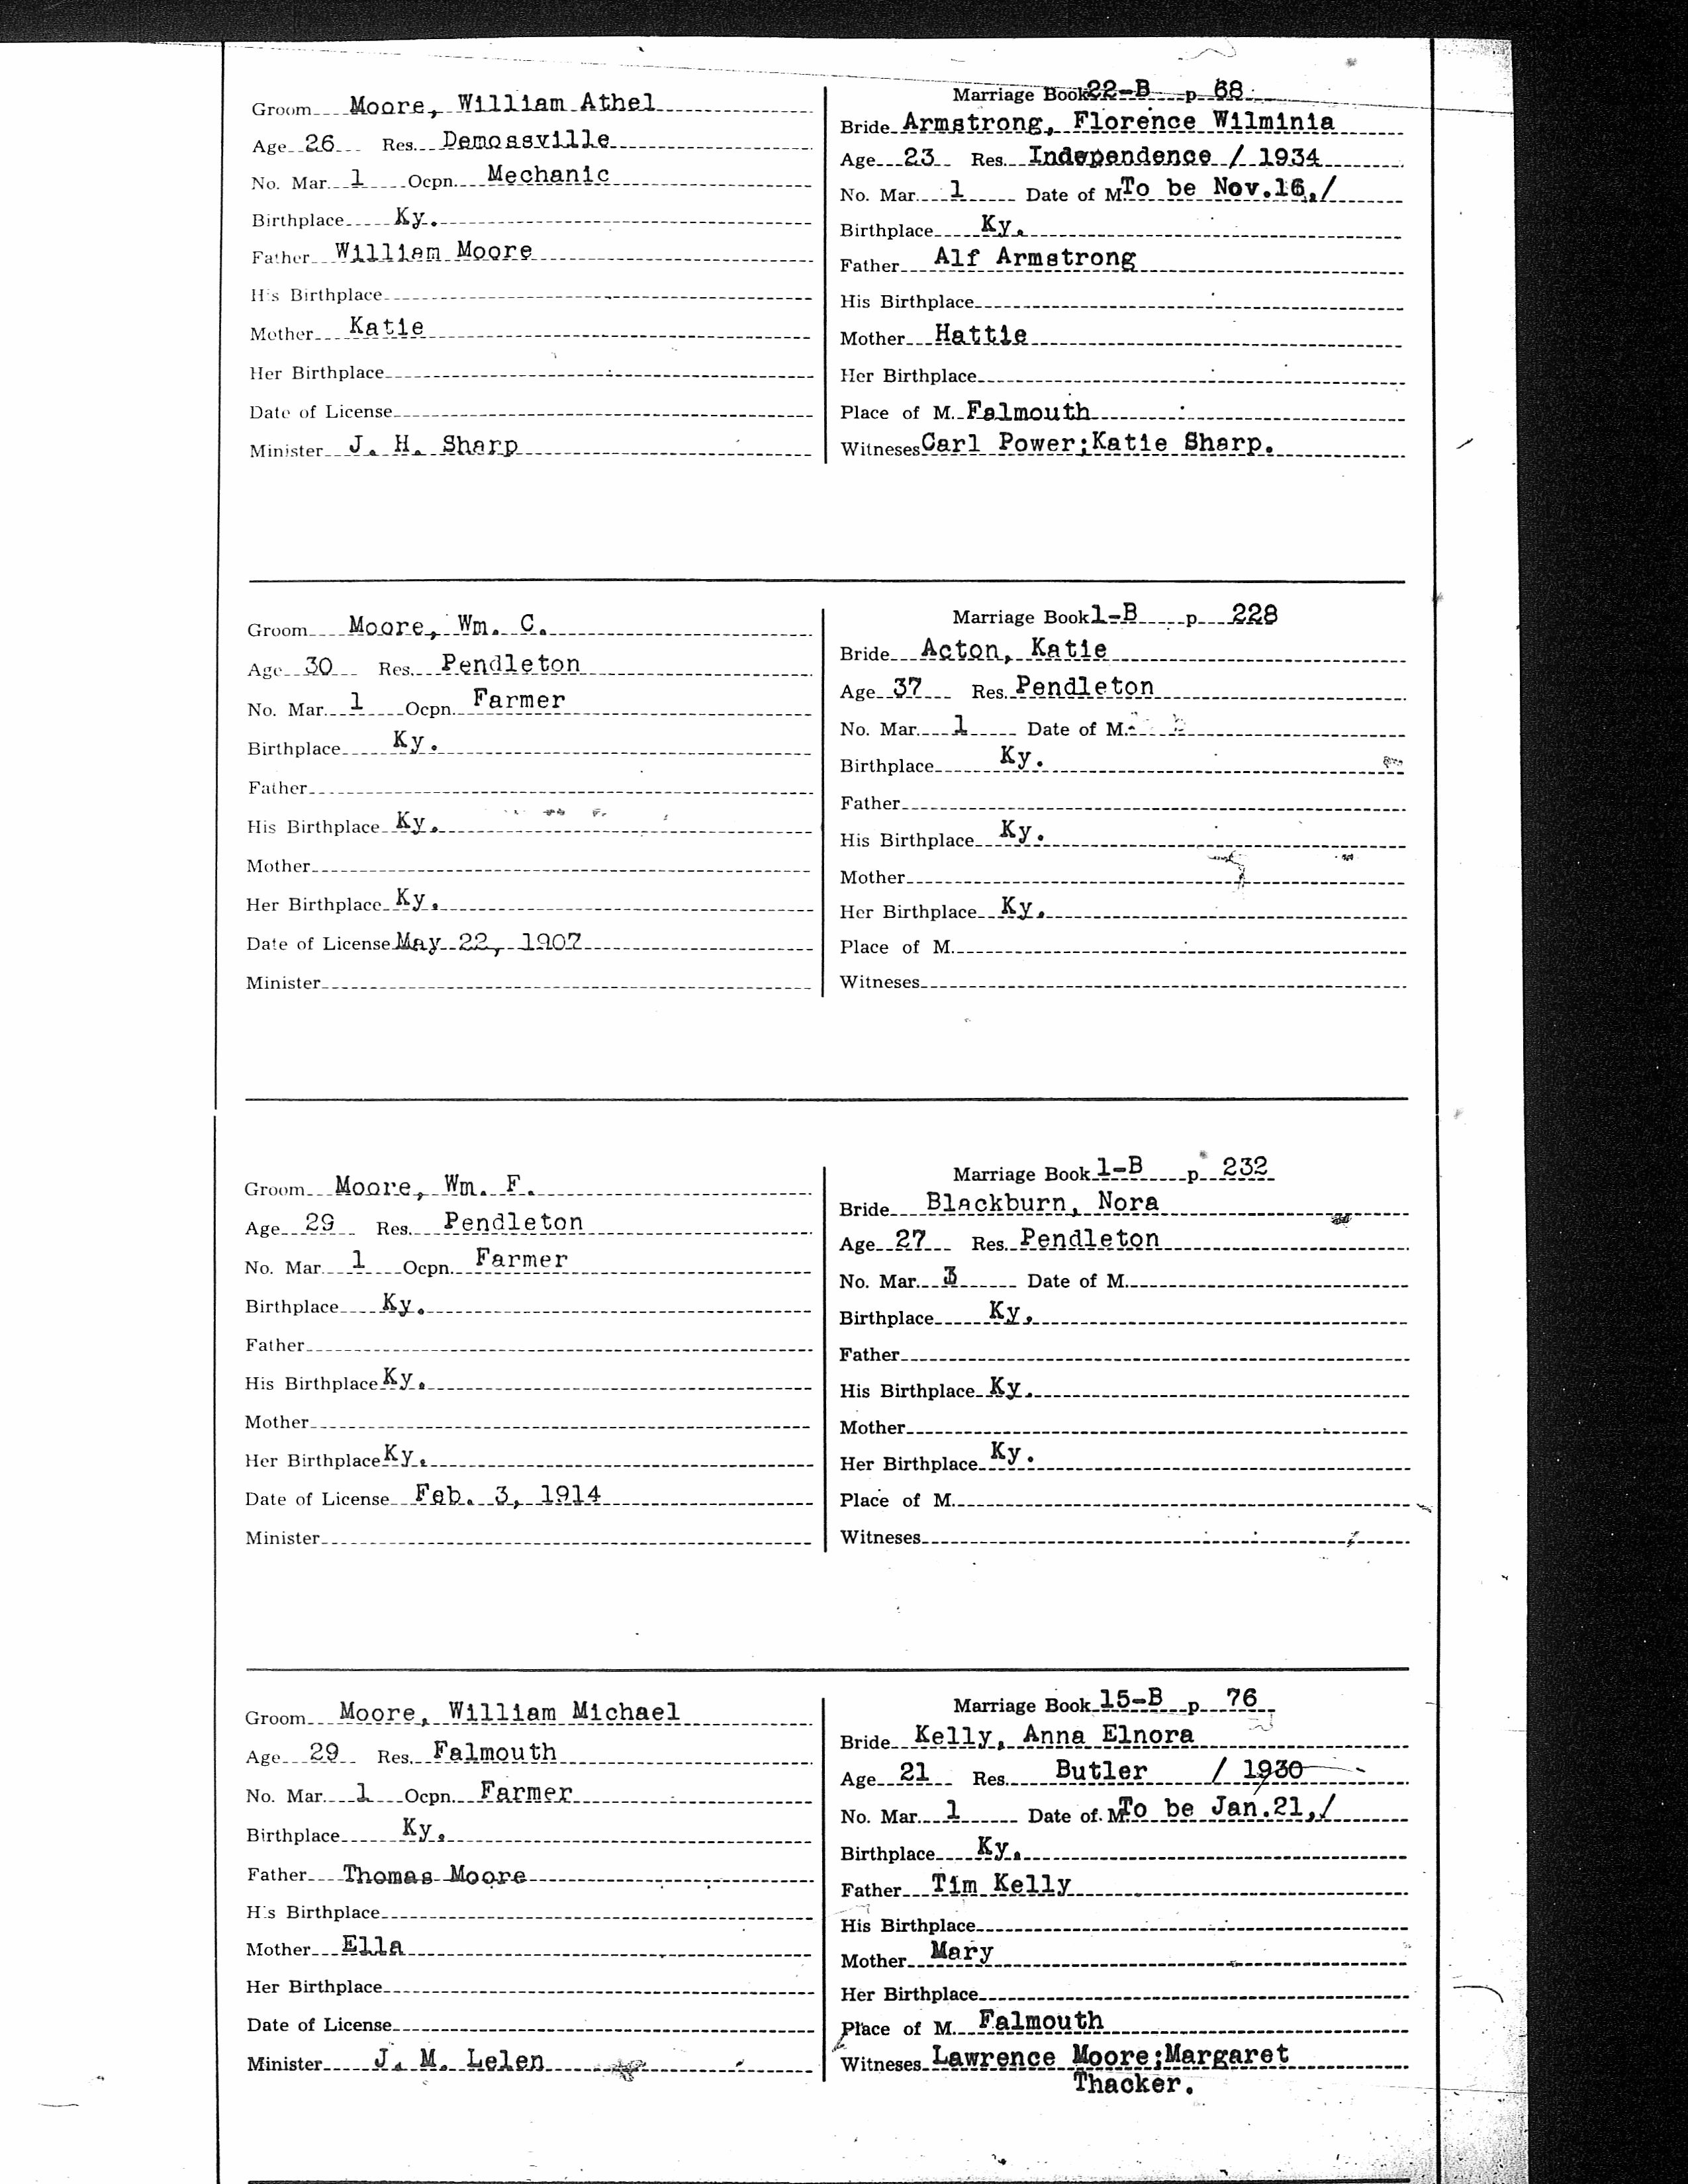 Groom Moore, William Athel
Age 26 Res. Demossville
No. Mar. 1 Ocpn. Mechanic
Birthplace Ky.
Father William Moore
His Birthplace
Mother Katie
Her Birthplace
Date of License
Minister J. H. Sharp
Marriage Book 22-B p 68
Bride Armstrong, Florence Wilminia
Age 23 Res. Independence / 1934
No. Mar. 1 Date of M. To be Nov.16,/
Birthplace Ky.
Father Alf Armstrong
His Birthplace
Mother Hattie
Her Birthplace
Place of M. Falmouth
Witneses Carl Power;Katie Sharp.
Groom Moore, Wm. C.
Age 30 Res. Pendleton
No. Mar. 1 Ocpn. Farmer
Birthplace Ky.
Father
His Birthplace Ky.
Mother
Her Birthplace Ky.
Date of License May 22, 1907
Minister
Marriage Book 1-B p 228
Bride Acton, Katie
Age 37 Res. Pendleton
No. Mar. 1 Date of M.
Birthplace Ky.
Father
His Birthplace Ky.
Mother
Her Birthplace Ky.
Place of M.
Witneses
Groom Moore, Wm. F.
Age 29 Res. Pendleton
No. Mar. 1 Ocpn. Farmer
Birthplace Ky.
Father
His Birthplace Ky.
Mother
Her Birthplace Ky.
Date of License Feb. 3, 1914
Minister
Marriage Book 1-B p 232
Bride Blackburn, Nora
Age 27 Res. Pendleton
No. Mar. 3 Date of M.
Birthplace Ky.
Father
His Birthplace Ky.
Mother
Her Birthplace Ky.
Place of M.
Witneses
Groom Moore, William Michael
Age 29 Res. Falmouth
No. Mar. 1 Ocpn. Farmer
Birthplace Ky.
Father Thomas Moore
His Birthplace
Mother Ella
Her Birthplace
Date of License
Minister J. M. Lelen
Marriage Book 15-B p 76
Bride Kelly, Anna Elnora
Age 21 Res. Butler / 1930
No. Mar. 1 Date of M. To be Jan.21,/
Birthplace Ky.
Father Tim Kelly
His Birthplace
Mother Mary
Her Birthplace
Place of M. Falmouth
Witneses Lawrence Moore;Margaret
Thacker.